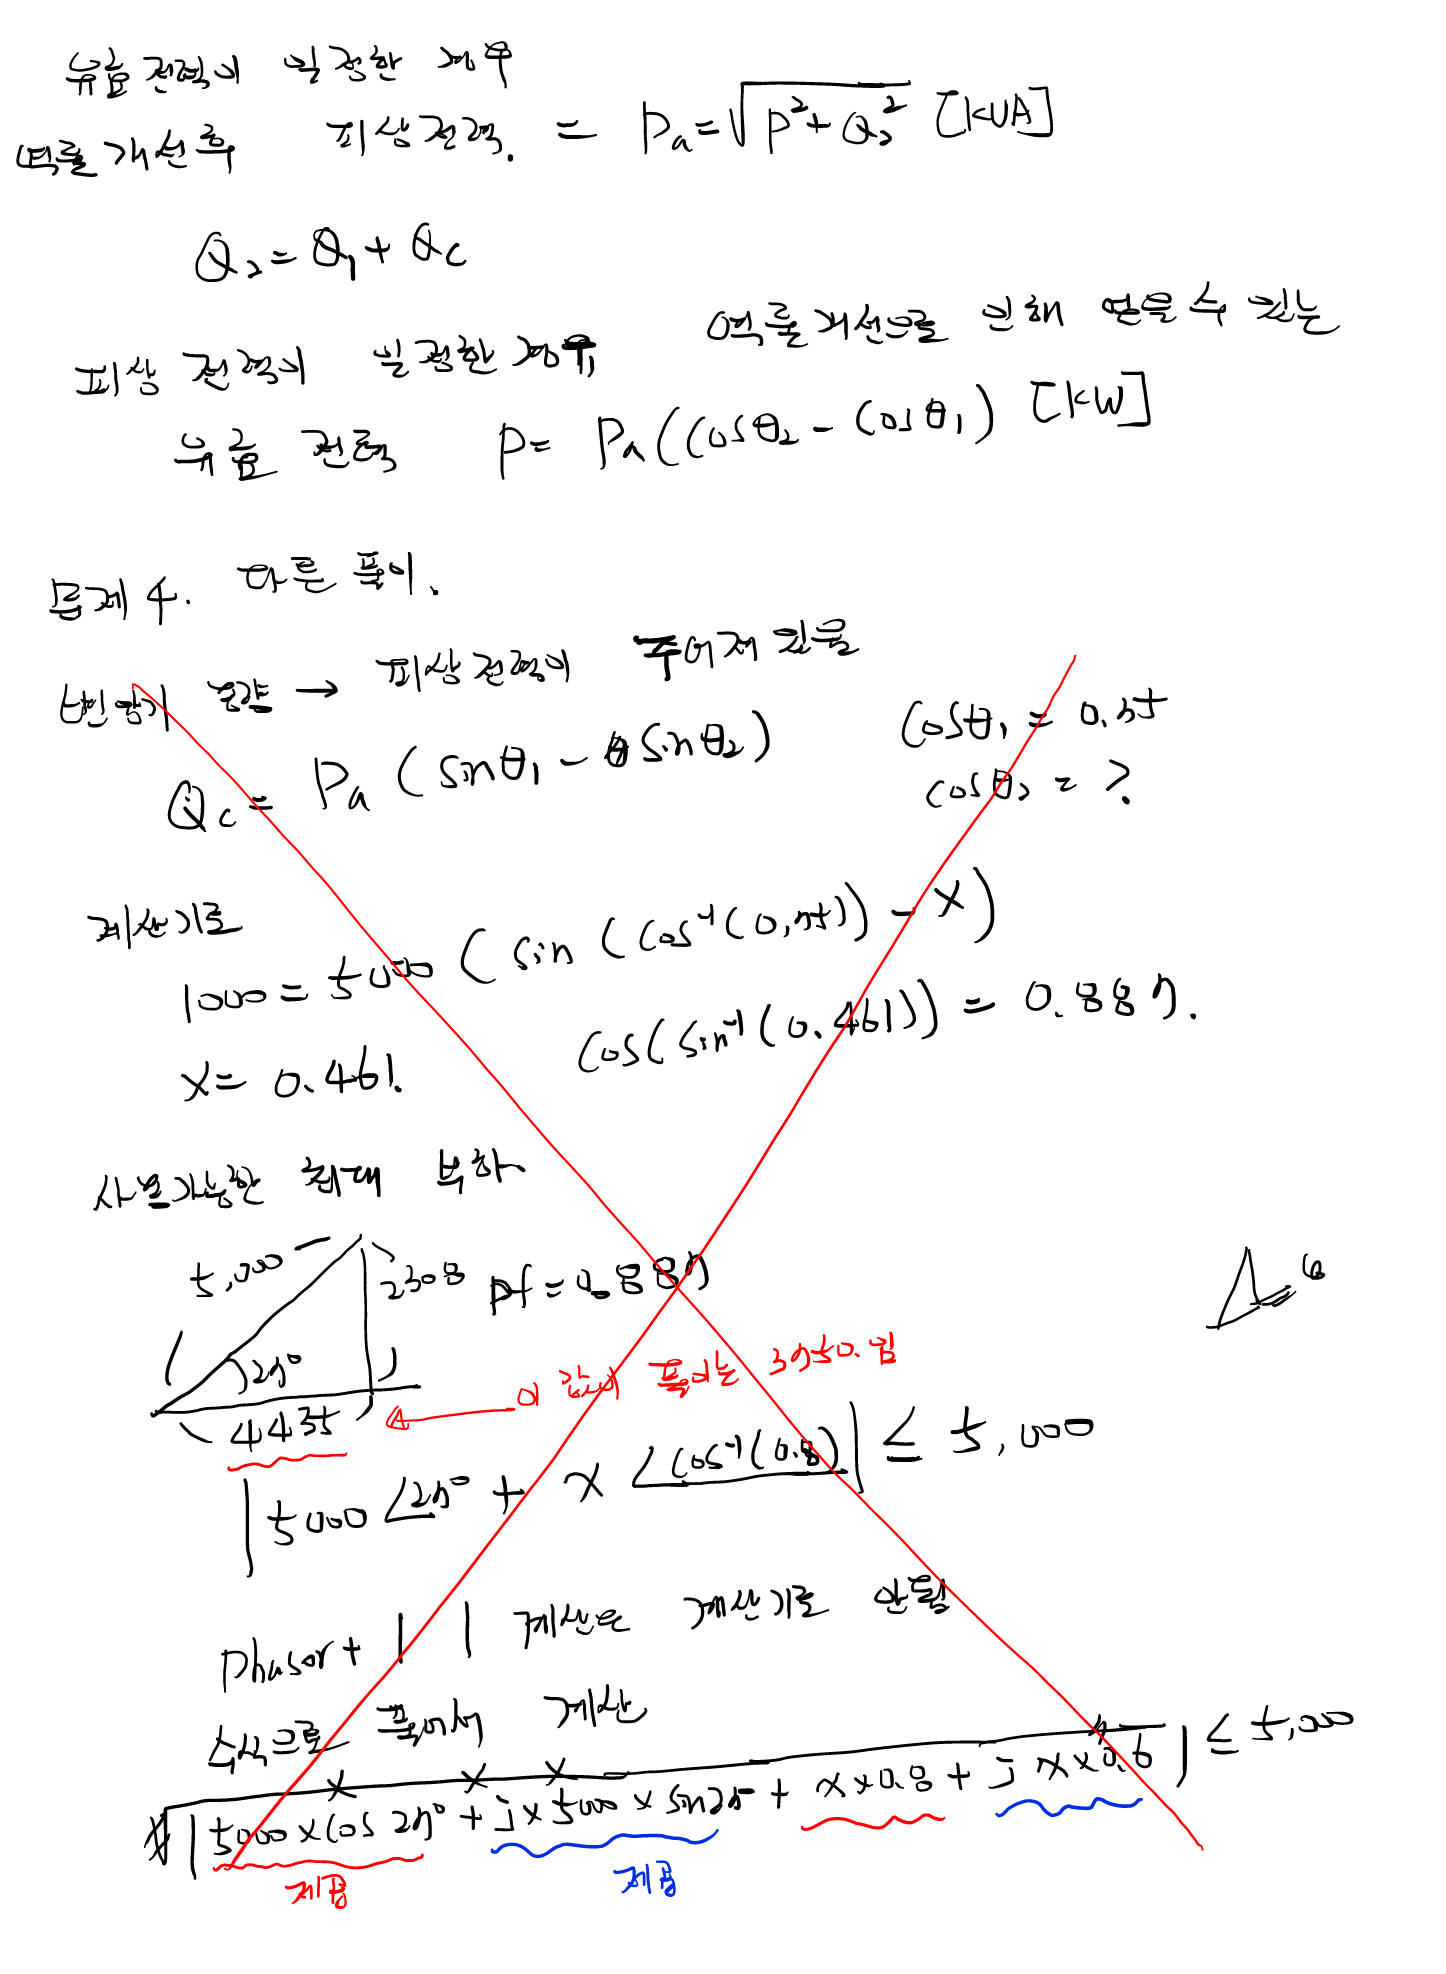 유효전력이 일정한 경우
역률개선후 피상전력. = Pa=√(P²+Q₂²) [kVA]
Q₂=Q₁+Qc
피상전력이 일정한 경우, 역률개선으로 인해 얻을 수 있는
유효 전력 P= Pa(cosθ₂-cosθ₁) [kW]
문제 4. 다른 풀이.
변압기 용량 → 피상전력이 주어져 있음
Qc= Pa(sinθ₁-sinθ₂) cosθ₁=0.75
cosθ₂=?
계산기로
1000=5000(sin(cos⁻¹(0.75))-x)
x=0.461. cos(sin⁻¹(0.461))=0.887.
사용가능한 최대 부하
5,000 2308 pf=0.887
27°
4435 ← 이 값이 풀이는 3750.임
|5000∠27°+x∠cos⁻¹(0.8)|≤5,000
Phasor+| | 계산은 계산기로 안됨
수식으로 풀어서 계산
√|5000×cos27°+j×5000×sin27+x×0.8+jx×0.6|≤5,000
제곱 제곱